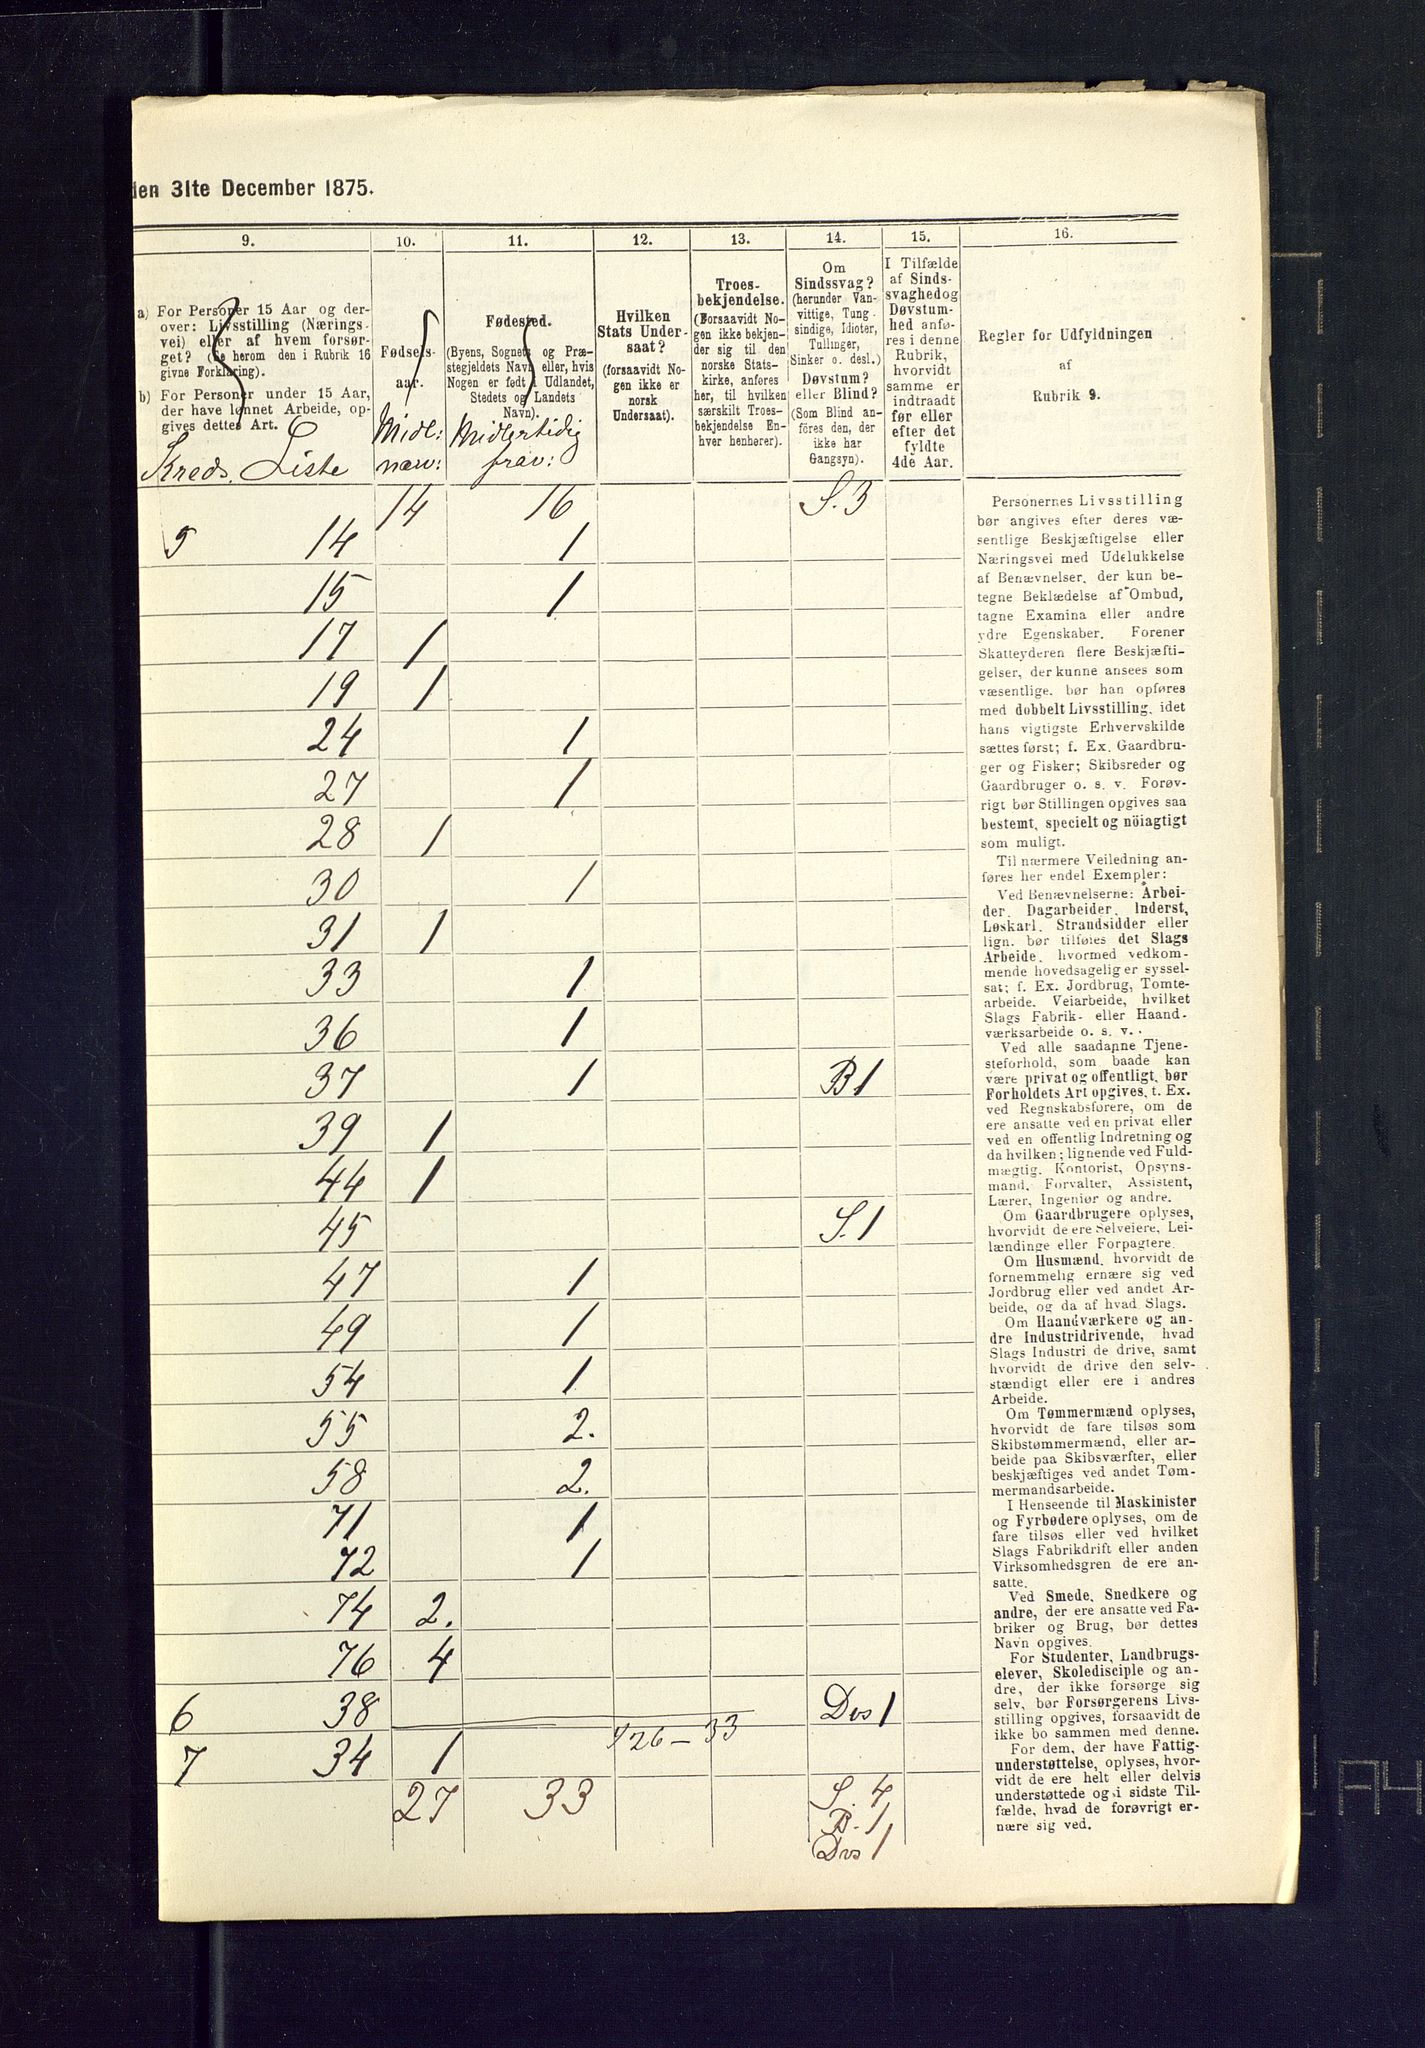 den 31te December 1875.
9. 10. 11. 12. 13. 14. 15. 16.
a) For Personer 15 Aar og der-
over: Livsstilling (Nærings-
vei) eller af hvem forsør-
get? (Se herom den i Rubrik 16
givne Forklaring).
b) For Personer under 15 Aar,
der have lønnet Arbeide, op-
gives dettes Art.
Kreds. Liste
Fødsels-
aar.
Midl:
nærv:
Fødested.
(Byens, Sognets og Præ-
stegjeldets Navn eller, hvis
Nogen er født i Udlandet,
Stedets og Landets
Navn).
Midlertidig
frav:
Hvilken
Stats Under-
saat?
(forsaavidt No-
gen ikke er
norsk
Undersaat).
Troes-
bekjendelse.
(Forsaavidt No-
gen ikke bekjen-
der sig til den
norske Stats-
kirke, anføres
her, til hvilken
særskilt Troes-
bekjendelse En-
hver henhører).
Om
Sindssvag?
(herunder Van-
vittige, Tung-
sindige, Idioter,
Tullinger,
Sinker o. desl.)
Døvstum?
eller Blind?
(Som Blind an-
føres den, der
ikke har
Gangsyn).
I Tilfælde
af Sinds-
svaghed og
Døvstum-
hed anfø-
res i denne
Rubrik,
hvorvidt
samme er
indtraadt
før eller
efter det
fyldte
4de Aar.
Regler for Udfyldningen
af
Rubrik 9.
14 16 S.3
5 14 1
15 1
17 1
19 1
24 1
27 1
28 1
30 1
31 1
33 1
36 1
37 1 B1
39 1
44 1
45 S.1
47 1
49 1
54 1
55 2.
58 2.
71 1
72 1
74 2.
76 4
6 38 Dvs 1
726 - 33
7 34 1
27 33 S. 4
B. 1
Dvs 1
Personernes Livsstilling
bør angives efter deres væ-
sentlige Beskjæftigelse eller
Næringsvei med Udelukkelse
af Benævnelser, der kun be-
tegne Beklædelse af Ombud,
tagne Examina eller andre
ydre Egenskaber. Forener
Skatteyderen flere Beskjæfti-
gelser, der kunne ansees som
væsentlige, bør han opføres
med dobbelt Livsstilling, idet
hans vigtigste Erhvervskilde
sættes først; f. Ex. Gaardbru-
ger og Fisker; Skibsreder og
Gaardbruger o. s. v. Forøv-
rigt bør Stillingen opgives saa
bestemt, specielt og nöiagtigt
som muligt.
Til nærmere Veiledning an-
føres her endel Exempler:
Ved Benævnelserne: Arbei-
der, Dagarbeider, Inderst,
Løskarl, Strandsidder eller
lign. bør tilføies det Slags
Arbeide, hvormed vedkom-
mende hovedsagelig er syssel-
sat; f. Ex. Jordbrug, Tomte-
arbeide, Veiarbeide, hvilket
Slags Fabrik- eller Haand-
værksarbeide o. s. v.
Ved alle saadanne Tjene-
steforhold, som baade kan
være privat og offentligt, bør
Forholdets Art opgives, t. Ex.
ved Regnskabsførere, om de
ere ansatte ved en privat eller
ved en offentlig Indretning og
da hvilken; lignende ved Fuld-
mægtig, Kontorist, Opsyns-
mand, Forvalter, Assistent,
Lærer, Ingeniør og andre.
Om Gaardbrugere oplyses,
hvorvidt de ere Selveiere, Lei-
lændinge eller Forpagtere.
Om Husmænd, hvorvidt de
fornemmelig ernære sig ved
Jordbrug eller ved andet Ar-
beide, og da af hvad Slags.
Om Haandværkere og an-
dre Industridrivende, hvad
Slags Industri de drive, samt
hvorvidt de drive den selv-
stændigt eller ere i andres
Arbeide.
Om Tømmermænd oplyses,
hvorvidt de fare tilsøs som
Skibstømmermænd, eller ar-
beide paa Skibsværfter, eller
beskjæftiges ved andet Tøm-
mermandsarbeide.
I Henseende til Maskinister
og Fyrbødere oplyses, om de
fare tilsøs eller ved hvilket
Slags Fabrikdrift eller anden
Virksomhedsgren de ere an-
satte.
Ved Smede, Snedkere og
andre, der ere ansatte ved Fa-
briker og Brug, bør dettes
Navn opgives.
For Studenter, Landbrugs-
elever, Skoledisciple og an-
dre, der ikke forsørge sig
selv, bør Forsørgerens Livs-
stilling opgives, forsaavidt de
ikke bo sammen med denne.
For dem, der have Fattig-
understøttelse, oplyses, hvor-
vidt de ere helt eller delvis
understøttede og i sidste Til-
fælde, hvad de forøvrigt er-
nære sig ved.
A4